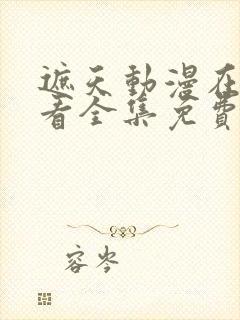 遮天動漫在
看全集免費
容岑